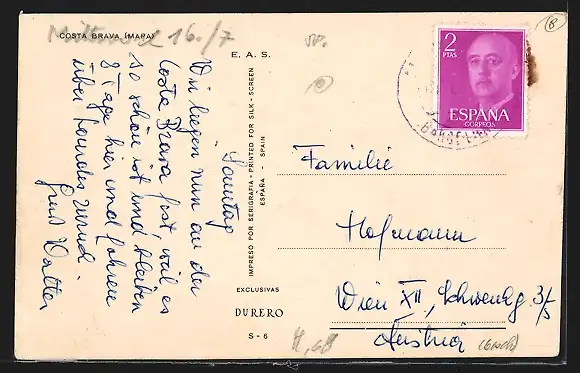 COSTA BRAVA (MAPA)
16./7
E. A. S.
Sonntag
Wir liegen nun an der
Costa Brava fest, weil es
so schön ist und bleiben
8 Tage hier und fahren
über Lourdes zurück.
Gruß Walter
IMPRESO POR SERIGRAFIA - PRINTED FOR SILK - SCREEN
ESPAÑA - SPAIN
EXCLUSIVAS
DURERO
S - 6
2
PTAS
ESPAÑA
CORREOS
BARCELONA
Familie
Hofmann
Wien XII, Schwenkg. 3/5
Austria